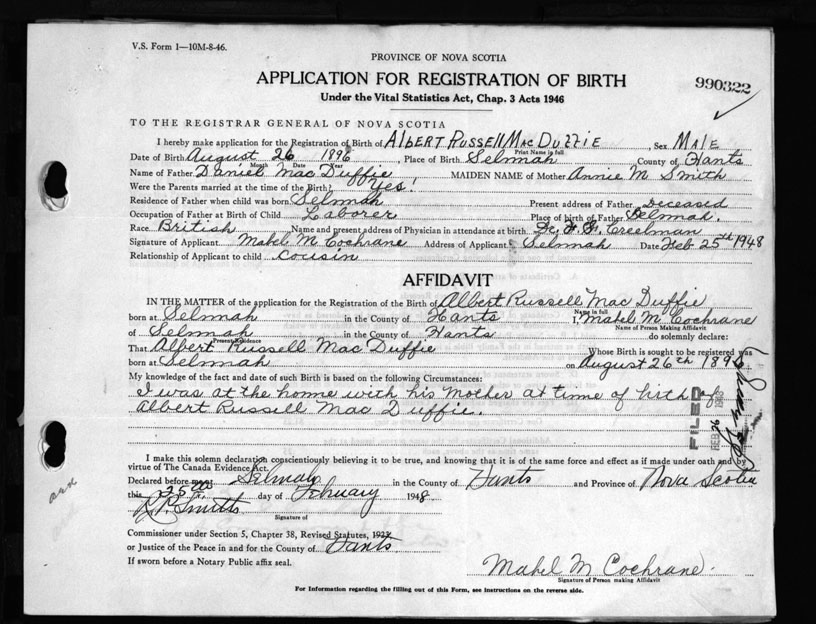 V.S. Form 1—10M-8-46.
PROVINCE OF NOVA SCOTIA
APPLICATION FOR REGISTRATION OF BIRTH
990322
Under the Vital Statistics Act, Chap. 3 Acts 1946
TO THE REGISTRAR GENERAL OF NOVA SCOTIA
I hereby make application for the Registration of Birth of ALBERT RUSSELL MAC DUFFIE, Sex MALE
Print Name in full
Date of Birth August 26 1896, Place of Birth Selmah County of Hants
Month Date Year
Name of Father Daniel Mac Duffie MAIDEN NAME of Mother Annie M Smith
Were the Parents married at the time of the Birth? Yes!
Residence of Father when child was born Selmah Present address of Father Deceased
Occupation of Father at Birth of Child Laborer Place of birth of Father Selmah.
Race British Name and present address of Physician in attendance at birth Dr. Creelman
Signature of Applicant Mabel M Cochrane Address of Applicant Selmah Date Feb 25th 1948
Relationship of Applicant to child cousin
AFFIDAVIT
IN THE MATTER of the application for the Registration of the Birth of Albert Russell Mac Duffie
Name in full
born at Selmah in the County of Hants I, Mabel M. Cochrane
Name of Person Making Affidavit
of Selmah in the County of Hants do solemnly declare:
Present Residence
That Albert Russell Mac Duffie Whose Birth is sought to be registered was
born at Selmah on August 26th 189
My knowledge of the fact and date of such Birth is based on the following Circumstances:
I was at the home with his Mother at time of birth of
Albert Russell Mac Duffie.
FILED
FEB 26
I make this solemn declaration conscientiously believing it to be true, and knowing that it is of the same force and effect as if made under oath and by
virtue of The Canada Evidence Act.
Declared before me at Selmah in the County of Hants and Province of Nova Scotia
this 25th day of February 1948
Smith
Signature of
Commissioner under Section 5, Chapter 38, Revised Statutes, 1923
or Justice of the Peace in and for the County of Hants
If sworn before a Notary Public affix seal.
Mabel M Cochrane.
Signature of Person making Affidavit
For Information regarding the filling out of this Form, see instructions on the reverse side.